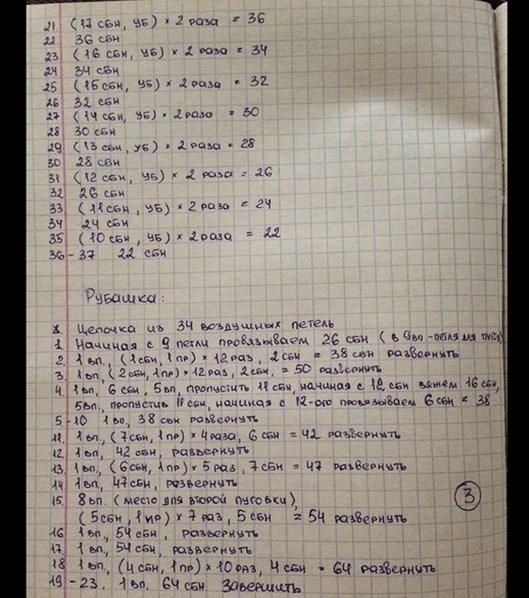 21 (17 сбн, уб) × 2 раза = 36
22 36 сбн
23 (16 сбн, уб) × 2 раза = 34
24 34 сбн
25 (15 сбн, уб) × 2 раза = 32
26 32 сбн
27 (14 сбн, уб) × 2 раза = 30
28 30 сбн
29 (13 сбн, уб) × 2 раза = 28
30 28 сбн
31 (12 сбн, уб) × 2 раза = 26
32 26 сбн
33 (11 сбн, уб) × 2 раза = 24
34 24 сбн
35 (10 сбн, уб) × 2 раза = 22
36-37 22 сбн
Рубашка:
Цепочка из 34 воздушных петель
1. Начиная с 9 петли провязываем 26 сбн (в 9вп -петля для
2. 1 вп, (1 сбн, 1 пр) × 12 раз, 2 сбн = 38 сбн развернуть
3. 1 вп, (2 сбн, 1 пр) × 12 раз, 2 сбн = 50 развернуть
4. 1 вп, 6 сбн, 5 вп, пропустить 11 сбн, начиная с 12 сбн вяжем 16 сбн,
5 вп, пропустив 11 сбн, начиная с 12-ого провязываем 6 сбн = 38
5-10 1 вп, 38 сбн развернуть
11. 1 вп, (7 сбн, 1 пр) × 4 раза, 6 сбн = 42 развернуть
12. 1 вп, 42 сбн, развернуть
13. 1 вп, (6 сбн, 1 пр) × 5 раз, 7 сбн = 47 развернуть
14 1 вп, 47 сбн, развернуть
15. 8 вп. (место для второй пуговки),
(5 сбн, 1 пр) × 7 раз, 5 сбн = 54 развернуть
16 1 вп, 54 сбн, развернуть
17. 1 вп, 54 сбн, развернуть
18 1 вп, (4 сбн, 1 пр) × 10 раз, 4 сбн = 64 развернуть
19-23. 1 вп. 64 сбн. Завершить
3